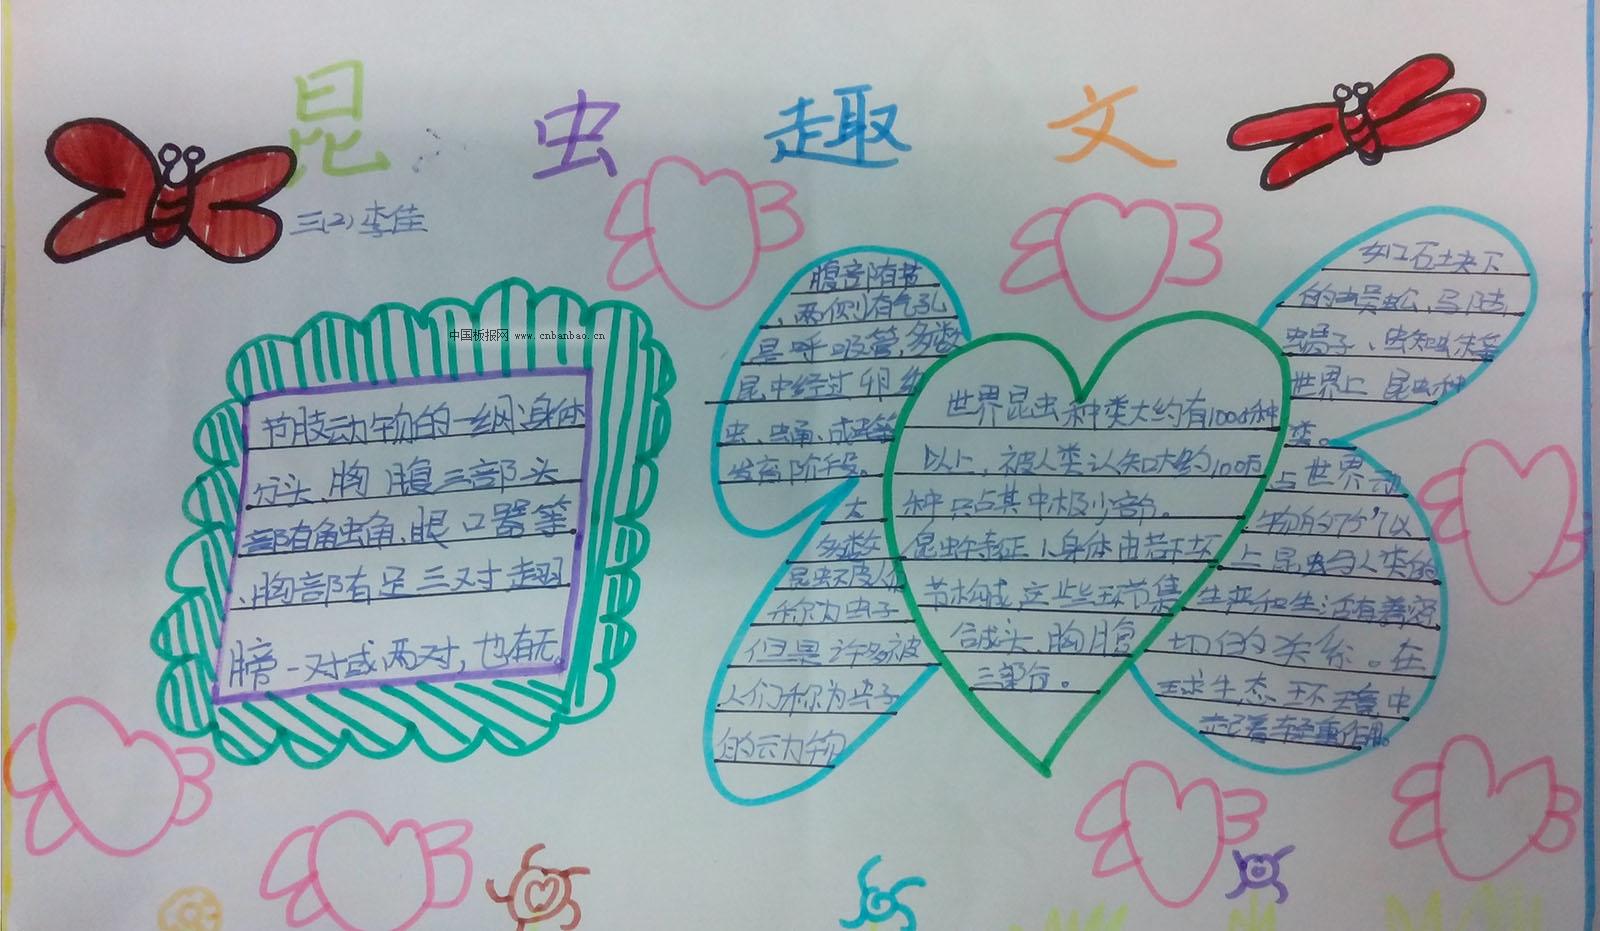 昆虫趣文
三(2)李佳
中国板报网 www.cnbanbao.cn
节肢动物的一纲,身体
分头、胸腹三部头
部有角虫角、眼口器等
、胸部有足三对翅
膀一对或两对,也有无。
腹部有节
,两侧有气孔
是呼吸管,多数
昆中经过卵幼
虫、蛹、成虫等
发育阶段。
大
多数
昆虫
称为虫子
但是许多被
人们称为虫子
的动物
世界昆虫种类大约有1000种
以上,被人类认知大约100万
种只占其中极少部份。
昆虫特征、身体由若干环
节构成,这些环节集
合成头、胸腹
三部份。
如石块下
的蜈蚣,马陆,
虫子、蜘蛛等
世界上昆虫种
类。
占世界动
物的75%以
上昆虫与人类的
生产和生活有着密
切的关系。在
球生态环境中
起着重作用。